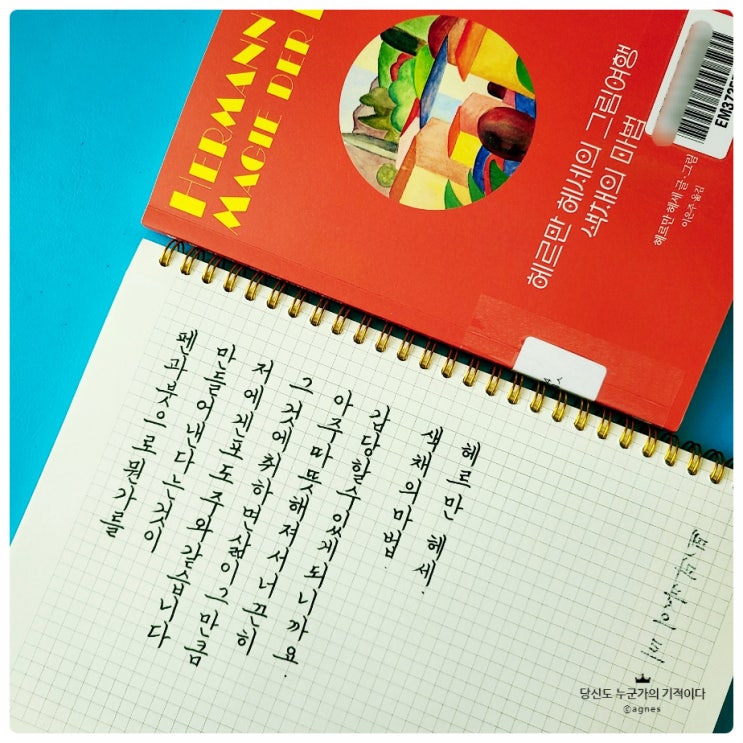 HERMANN
MAGIE DER
헤르만 헤세의 그림여행
색채의 마법
헤르만 헤세 글·그림
이은주 옮김
펜과 붓으로 뭔가를
만들어 낸다는 것이
저에겐 포도주와 같습니다
그것에 취하면 삶이 그만큼
아주 따뜻해져서 너끈히
감당할 수 있게 되니까요.
색채의 마법.
헤르만 헤세.
당신도 누군가의 기적이다
©agnes